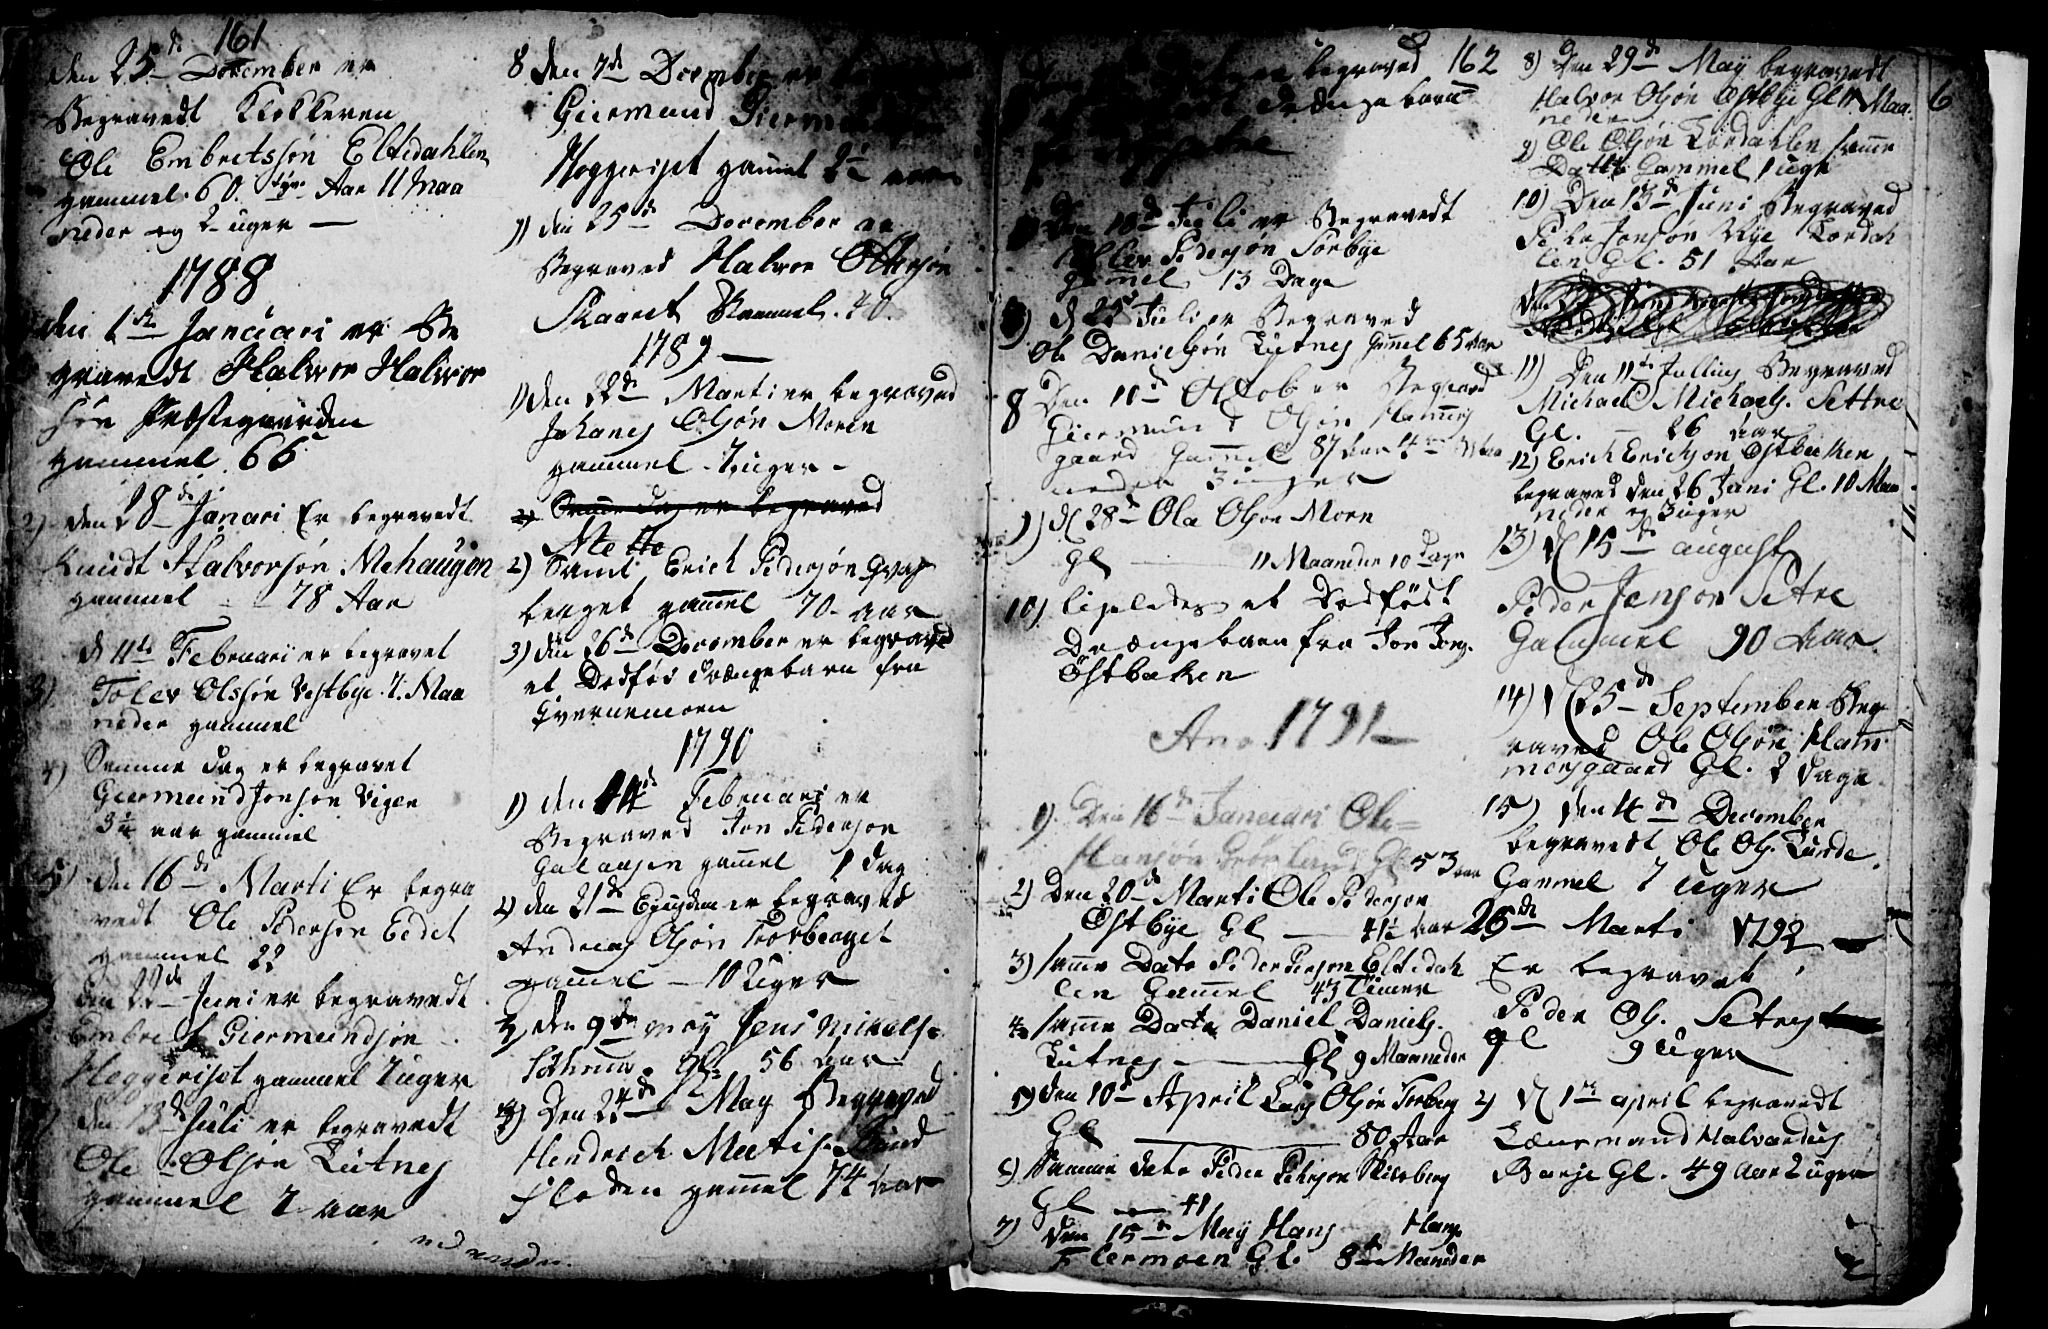 161
den 25de December er
Begravedt Klokkeren
Ole Embretssøn Eltedahlen
gammel 60. tyve Aar 11 Maa
neder og 2 uger —
1788
den 1ste Januari er Be
gravedt Halvor Halvor
søn Præstegaarden
gammel 66
2) den 28de Januari Er begravedt
Knudt Halvorsøn Mehaugen
gammel — 78 Aar
3) d 4de Februari er begravet
Tolev Olssøn Vestbye 7. Maa
neder gammel
4) Samme dag er begravet
Giermund Jonsøn Vigen
3½ aar gammel
5) den 16de Marti Er begra
vedt Ole Pedersøn Eedet
gammel 22
den 22de Juni er begravedt
Embret Giermundsøn
Heggeriset gammel 7 uger
den 13de Juli er begravedt
Ole Olsøn Lutnes
gammel 7 aar
8 den 7de December er
Giermund Giermundsøn
Heggeriset gamel 2½ aar
9) den 25de December er
Begraved Halvor Ottersøn
Skaaret Gammel 40.
1789 —
1) den 22de Marti er begraved
Johanes Olsøn Moren
gammel 7 uger —
2) Samme dag er begraved
Mette
2) Saml Erich Pedersøn Qvas
berget gammel 70 aar
3) den 26de December er begraved
et Dødfød drængebarn fra
Qvernemoen
1790
1) den 14de Februari er
Begraved Jon Pedersøn
Galaasen gammel 1 dag
2) den 21de Ejusdem er begraved
Andreas Olsøn Torberget
gammel — 10 Uger
3) den 9de may Jens Nikels.
Gl: 56 aar
4) Den 24de May Begraved
Hendrich Matis. Sund
floden gamel 74 Aar
162
begraved
drænge barn
Den 18de Juli er Begravedt
Peder Pedersøn Torbye
gamel 13 Dage
7) d 25 Juli er Begraved
Ole Danielsøn Lutnes gamel 65 aar
8 Den 10d Octob er Begraved
Giermund Olsøn Hammers
gaard Gammel 87 Aar 4 Maa
neder 3 uger
9) d 28de Ole Olsøn Moen
Gl — 11 Maaneder 10 Dage
10) ligeledes et Dødfødt
Drængebarn fra Jon Jons.
Østbeken
Ano 1791
1) Den 16de Januari Ole
Hansøn Grønland Gl 53 aar
2) Den 20de Marti Ole Pedersøn
Østbye Gl — 41½ Aar
3) samme Dato Peder Pedersøn Eltedah
len Gammel 43 Timer
4 samme Dato Daniel Daniels.
Lutnes — Gl 9 Maaneder
5) den 10de April Lars Olsøn Torberg
Gl — 80 Aar
6) Samme dato Peder Pedersøn Skiærberg
Gl — 41
7) den 15de May Hans Hans.
Flermoen Gl. 8te Maaneder
8) Den 29de May begravedt
Halvor Olsøn Østbye Gl 11 Maa
neder
9) Ole Olsøn Lørdahlen samme
Datto Gammel 1 uge
10) Den 13de Juni Begraved
Peder Jonsøn Nye Lørdah
len Gl. 51 Aar
11) Den 11te Jullius Begraved
Michael Michaels. Settre
Gl. — 26 aar
12) Erich Erichsøn Østbecken
begraved den 26 Juni Gl. 10 Maa
neder og 3 uger
13) d 15de august
Peder Jensøn Setre
Gammel 90 Aar.
14) d 25de September Beg
raved Ole Olsøn Ham
mersgaard Gl. 2 dage
15) den 4de December
begravedt Ole Ols. Lunde
Gammel 7 uger
25de Marti 1792
Er begravet
Peder Ols. Setres
gl 9 uger
2) d 1ste april begravedt
Lænsmand Halvardus
Borje Gl. 49 Aar 2 uger